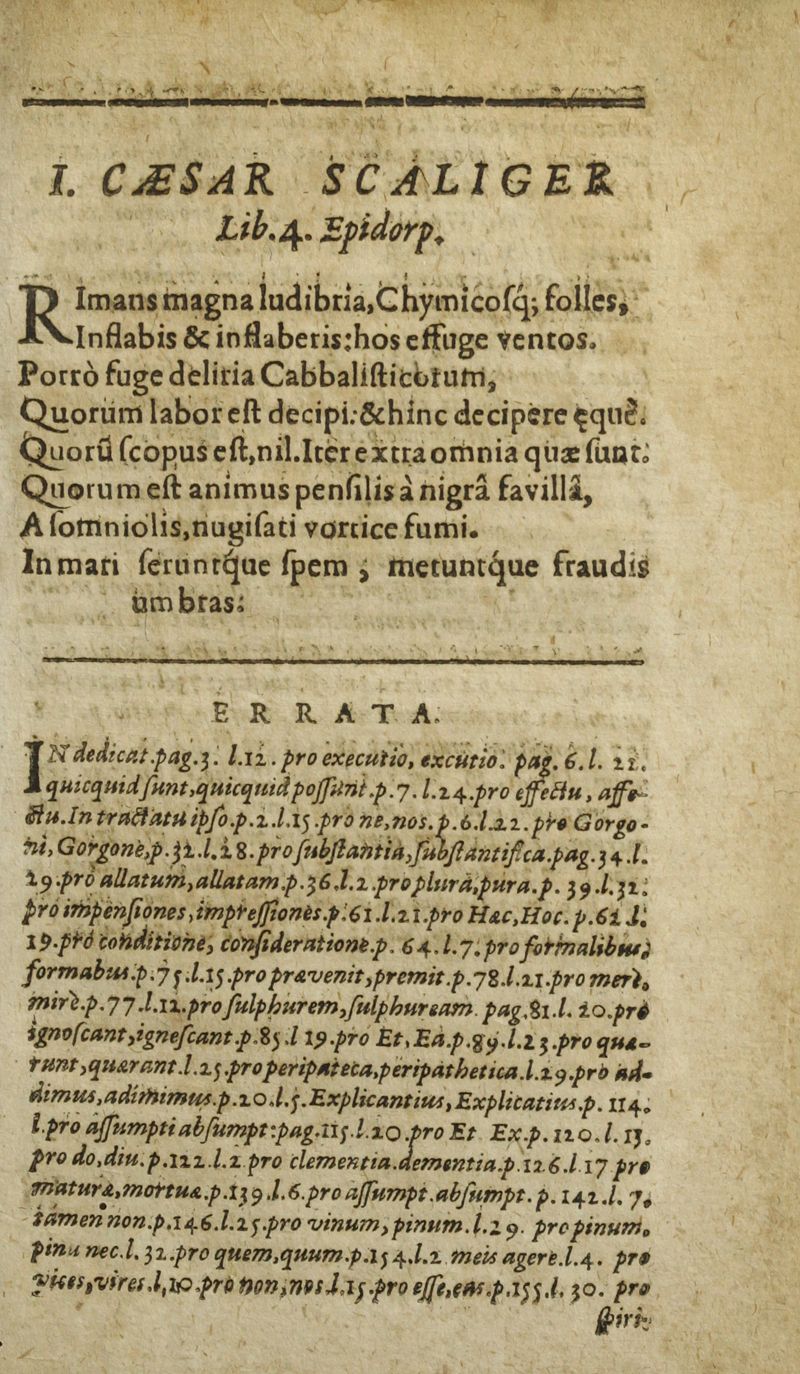 I. CÆSAR SCALIGER
Lib. 4. Epidorp.
RImans magna ludibria, Chymicosq; folles,
Inflabis & inflaberis: hos effuge ventos.
Porrò fuge deliria Cabbalisticorum,
Quorum labor est decipi: & hinc decipere ęquè.
Quorū scopus est, nil. Iter extra omnia quæ sunt:
Quorum est animus pensilis à nigrâ favillâ,
A somniolis, nugisati vortice fumi.
In mari feruntq́ue spem; metuntq́ue fraudis
umbras:
ERRATA.
IN dedicat. pag. 3. l. 12. pro executio, excutio. pag. 6. l. 22.
quicquid sunt, quicquid possunt. p. 7. l. 24. pro effectu, affe-
ctu. In tractatu ipso. p. 2. l. 15. pro ne, nos. p. 6. l. 22. pro Gorgo-
ni, Gorgone, p. 32. l. 28. pro substantia, substantifica. pag. 34. l.
29. pro allatum, allatam. p. 36. l. 2. pro plura, pura. p. 39. l. 32.
pro impensiones, impressiones. p. 61. l. 21. pro Hæc, Hoc. p. 62 l.
19. pro conditione, consideratione. p. 64. l. 7. pro formalibus,
formabus. p. 75. l. 15. pro prævenit, premit. p. 78. l. 21. pro merè,
mirè. p. 77. l. 12. pro sulphurem, sulphuream. pag. 81. l. 20. pro
ignoscant, ignescant. p. 85. l 19. pro Et, Ea. p. 89. l. 23. pro quæ-
runt, quærant. l. 25. pro peripateca, peripathetica. l. 29. pro ad-
dimus, adimimus. p. 20. l. 5. Explicantius, Explicatius. p. 114.
l. pro assumpti absumpt: pag. 115. l. 20. pro Et Ex. p. 120. l. 13.
pro do, diu. p. 122. l. 2 pro clementia. dementia. p. 126. l 17 pro
maturæ, mortuæ. p. 139. l. 6. pro assumpt. absumpt. p. 142. l. 7.
tamen non. p. 146. l. 25. pro vinum, pinum. l. 29. pro pinum.
pinu nec. l. 32. pro quem, quum. p. 154. l. 2. meis agere. l. 4. pro
vices, vires. l, 10. pro non, nos l. 15. pro esse, eas. p. 155. l. 30. pro
spiri-